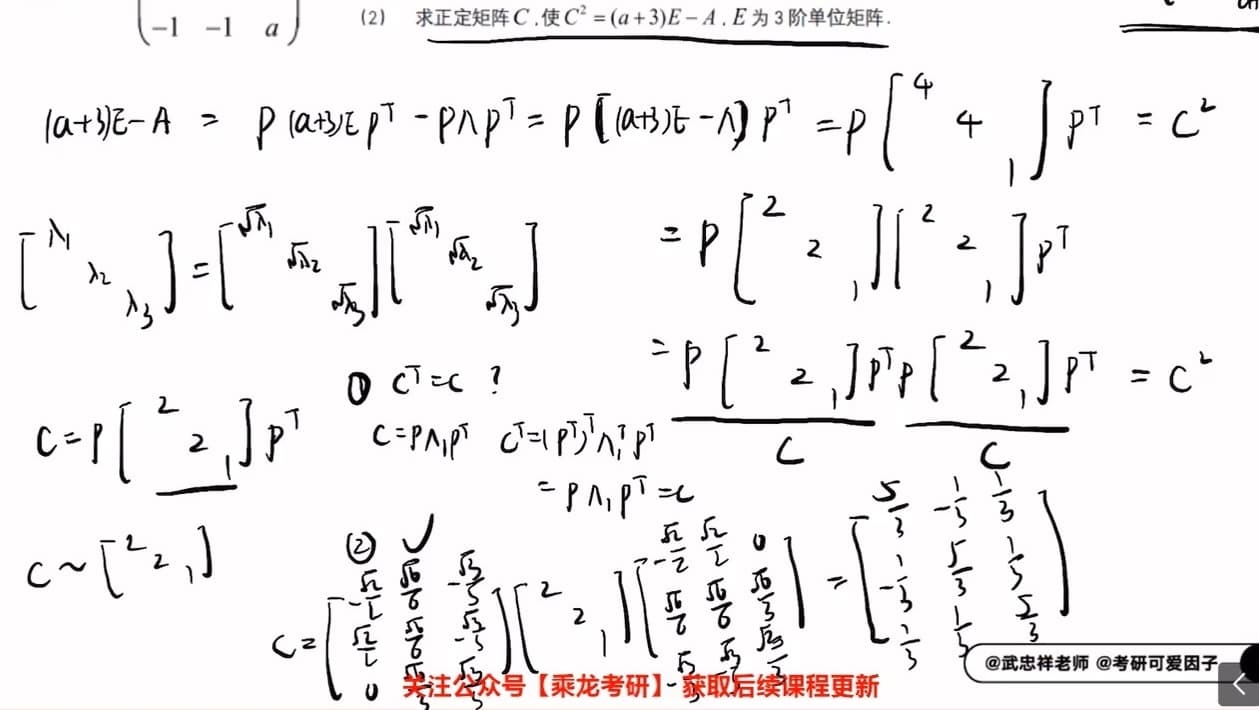 -1 -1 a
(2) 求正定矩阵C,使C²=(a+3)E-A,E为3阶单位矩阵.
(a+3)E-A = P(a+3)E Pᵀ - PΛPᵀ = P[(a+3)E-Λ]Pᵀ = P[4 4 1]Pᵀ = C²
[λ₁ λ₂ λ₃] = [√λ₁ √λ₂ √λ₃][√λ₁ √λ₂ √λ₃]
= P[2 2 1][2 2 1]Pᵀ
= P[2 2 1]PᵀP[2 2 1]Pᵀ = C²
C C
① Cᵀ=C ?
C=P[2 2 1]Pᵀ
C=PΛ₁Pᵀ Cᵀ=(Pᵀ)ᵀΛ₁ᵀPᵀ
= PΛ₁Pᵀ=C
C~[2 2 1]
② ✓
C=
[2 2 1]
=
5/3 -1/3 1/3
-1/3 5/3 1/3
1/3 1/3 5/3
@武忠祥老师 @考研可爱因子
关注公众号【乘龙考研】 获取后续课程更新